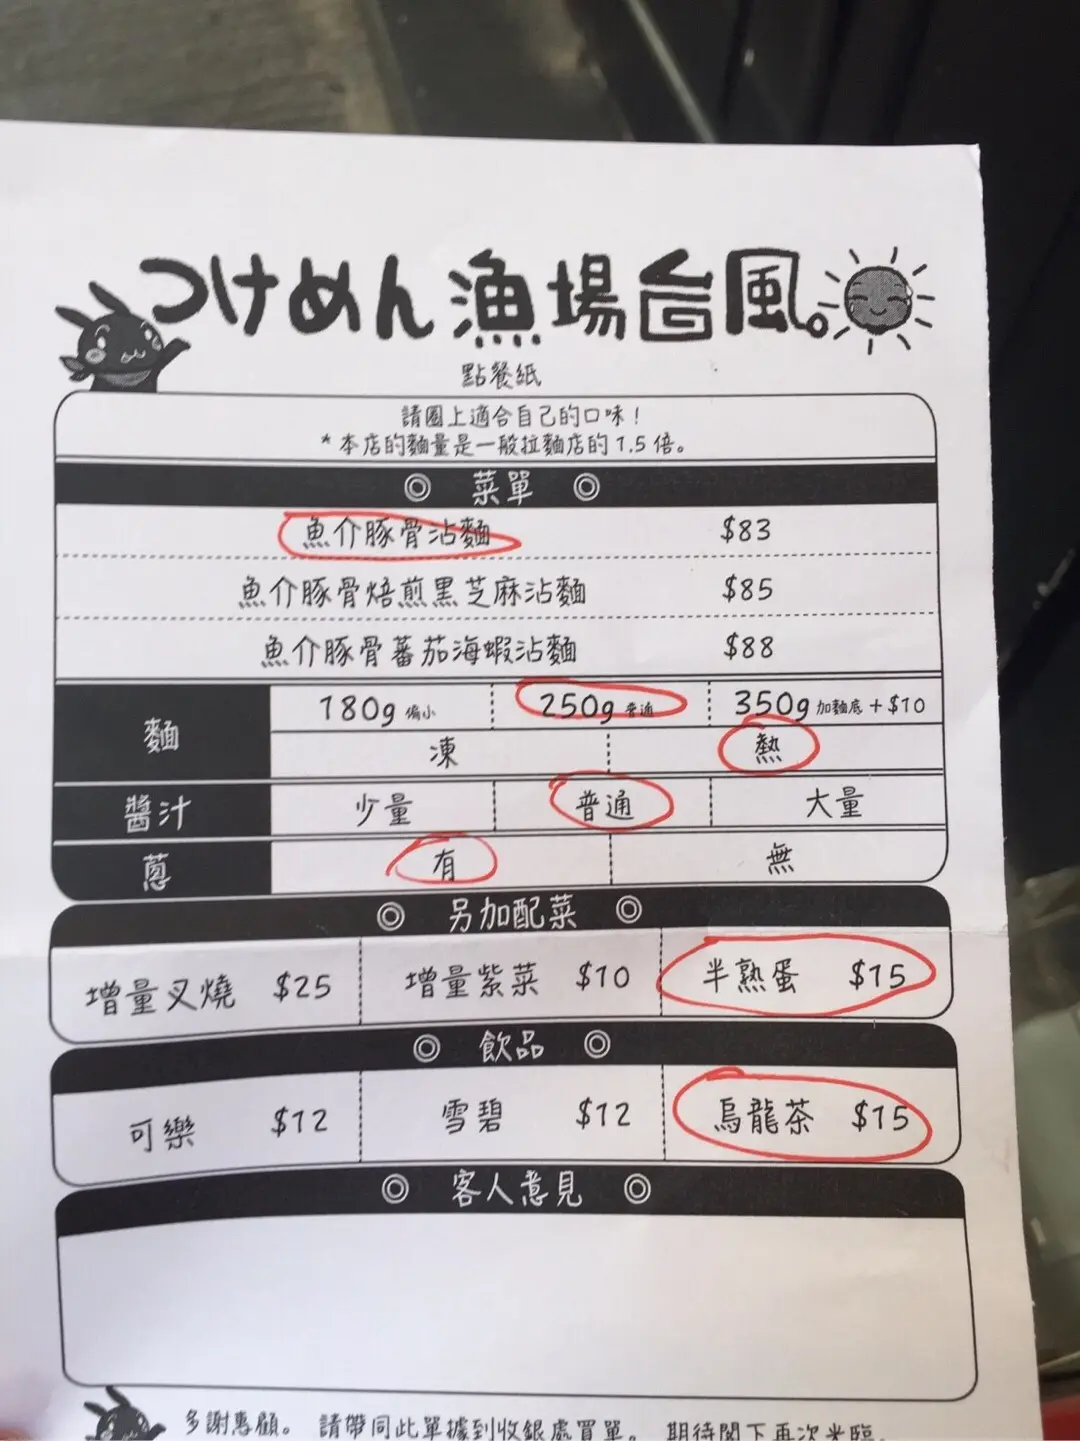 つけめん漁場台風。
點餐紙
請圈上適合自己的口味！
*本店的麵量是一般拉麵店的1.5倍。
◎ 菜單 ◎
魚介豚骨沾麵 $83
魚介豚骨焙煎黑芝麻沾麵 $85
魚介豚骨蕃茄海蝦沾麵 $88
麵 180g 偏小 250g 普通 350g 加麵底+$10
凍 熱
醬汁 少量 普通 大量
蔥 有 無
◎ 另加配菜 ◎
增量叉燒 $25 增量紫菜 $10 半熟蛋 $15
◎ 飲品 ◎
可樂 $12 雪碧 $12 烏龍茶 $15
◎ 客人意見 ◎
多謝惠顧。 請帶同此單據到收銀處買單。 期待閣下再次光臨。